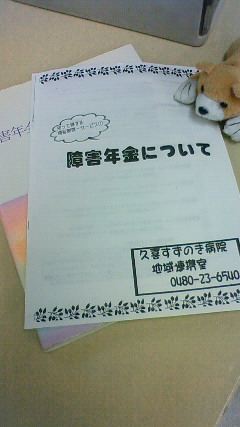 障害年金について
久喜すずのき病院
地域連携室
0480-23-6540